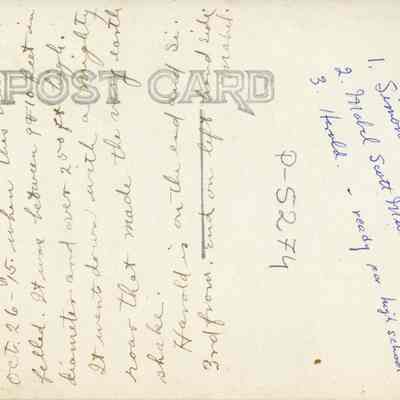 POST CARD
Oct. 26-15. when this
felled. It was between 9 & 10 feet in
diameter and over 250 ft high.
It went down with a mighty
roar that made the very earth
shake.
Harold is on the end and Si.
3rd from. end on left hand side
Mabel.
P-5274
1. Simon
2. Mabel Scott
3. Harold. - ready for high school